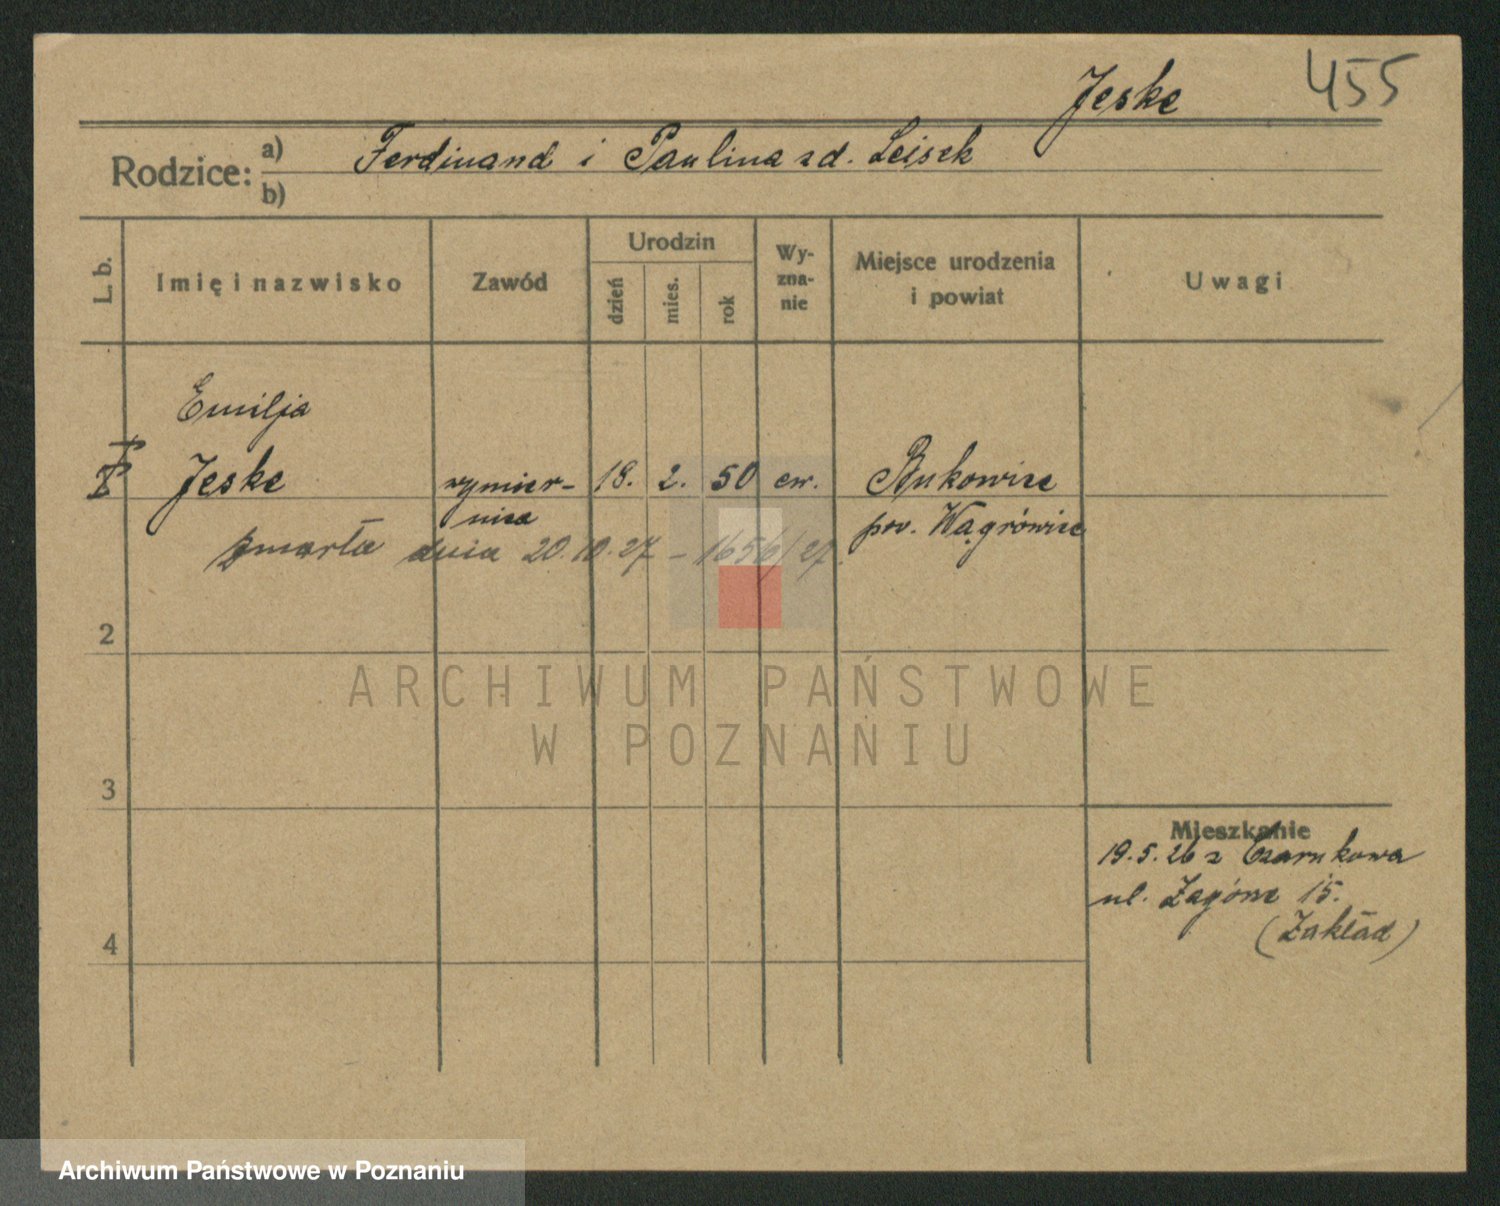 Jeske 455
Rodzice: a) Ferdinand i Paulina zd. Leiszk
b)
L. b. Imię i nazwisko Zawód Urodzin dzień mies. rok Wyznanie Miejsce urodzenia i powiat Uwagi
Emilja
Jeske wymier- 18. 2. 50 ew. Bukowiec
nica pow. Wągrówiec
zmarła dnia 20.10.27 – 1656/27.
2
ARCHIWUM PAŃSTWOWE
W POZNANIU
3
Mieszkanie
19.5.26 z Czarnkowa
ul. Zagórze 15.
(Zakład)
4
Archiwum Państwowe w Poznaniu